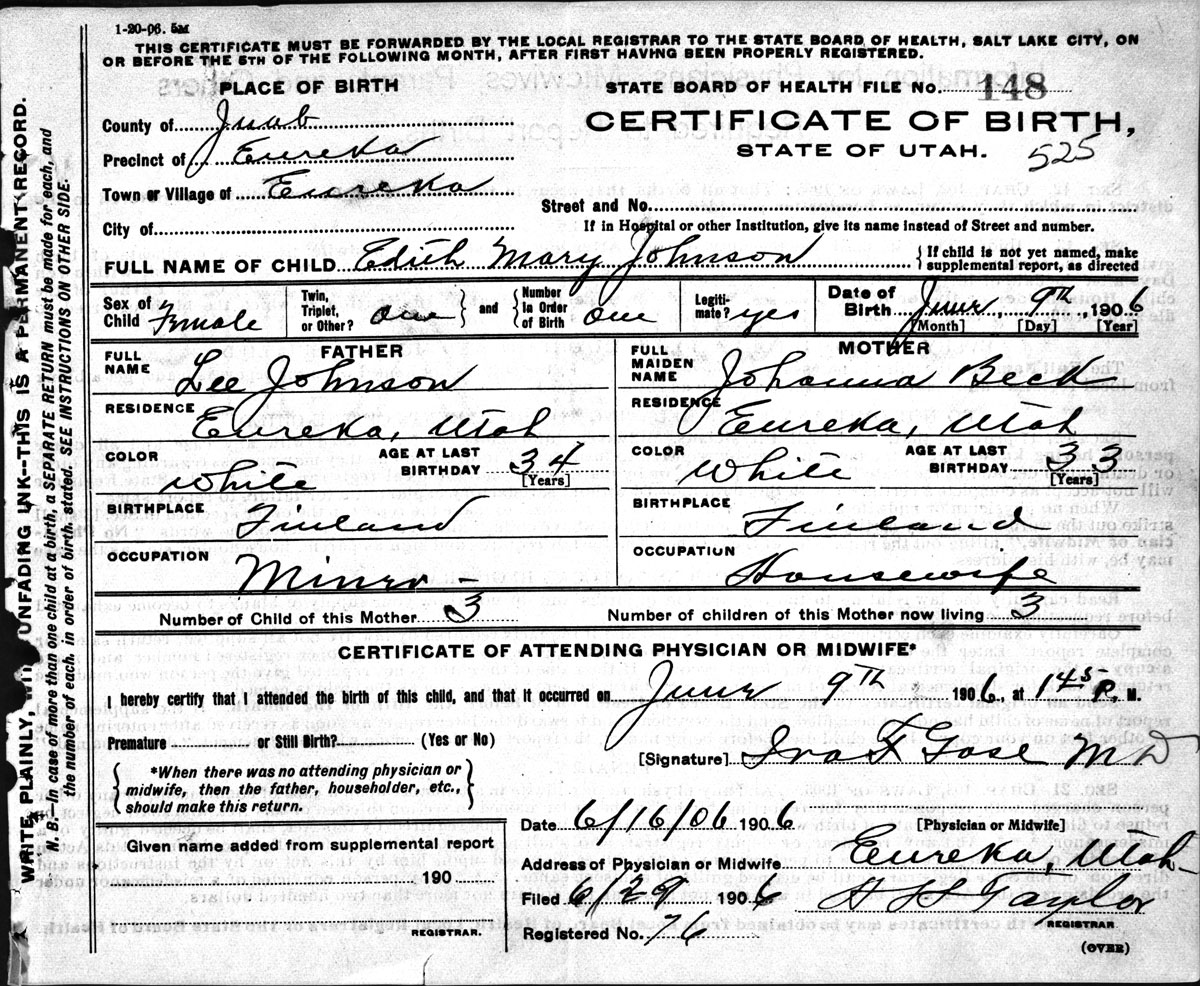 1-20-06. 5M
THIS CERTIFICATE MUST BE FORWARDED BY THE LOCAL REGISTRAR TO THE STATE BOARD OF HEALTH, SALT LAKE CITY, ON
OR BEFORE THE 5TH OF THE FOLLOWING MONTH, AFTER FIRST HAVING BEEN PROPERLY REGISTERED.
PLACE OF BIRTH
STATE BOARD OF HEALTH FILE NO. 148
County of Juab
CERTIFICATE OF BIRTH,
Precinct of Eureka
STATE OF UTAH. 525
Town or Village of Eureka
Street and No.
City of
If in Hospital or other Institution, give its name instead of Street and number.
FULL NAME OF CHILD Edith Mary Johnson { If child is not yet named, make supplemental report, as directed
Sex of Child Female
Twin, Triplet, or Other? One } and { Number In Order of Birth One
Legitimate? yes
Date of Birth June 9th, 1906
[Month] [Day] [Year]
FATHER
FULL NAME Lee Johnson
RESIDENCE Eureka, Utah
COLOR White
AGE AT LAST BIRTHDAY 34
[Years]
BIRTHPLACE Finland
OCCUPATION Miner -
MOTHER
FULL MAIDEN NAME Johanna Beck
RESIDENCE Eureka, Utah
COLOR White
AGE AT LAST BIRTHDAY 33
[Years]
BIRTHPLACE Finland
OCCUPATION Housewife
Number of Child of this Mother 3
Number of children of this Mother now living 3
CERTIFICATE OF ATTENDING PHYSICIAN OR MIDWIFE*
I hereby certify that I attended the birth of this child, and that it occurred on June 9th 1906, at 1 45 P. M.
Premature or Still Birth? (Yes or No)
{ *When there was no attending physician or
midwife, then the father, householder, etc.,
should make this return. }
[Signature] Ira F M D
Date 6/16/06 1906
[Physician or Midwife]
Address of Physician or Midwife Eureka, Utah
Filed 6/29 1906 H Taylor
Registered No. 76
REGISTRAR
(OVER)
Given name added from supplemental report
190
REGISTRAR.
WRITE PLAINLY, WITH UNFADING INK--THIS IS A PERMANENT RECORD.
N. B.--In case of more than one child at a birth, a SEPARATE RETURN must be made for each, and
the number of each, in order of birth, stated. SEE INSTRUCTIONS ON OTHER SIDE.